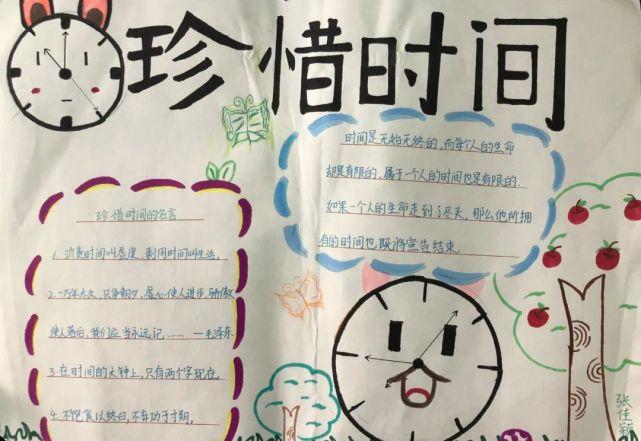 珍惜时间
时间是无始无终的,而每个人的生命
却是有限的,属于一个人的时间也是有限的.
如果一个人的生命走到了尽头,那么他所拥
有的时间也既将宣告结束.
珍惜时间的名言
1.浪费时间叫虚度,利用时间叫生活.
2.一万年太久,只争朝夕,虚心使人进步,骄傲
使人落后,我们应当永远记,…… —毛泽东
3.在时间的大钟上,只有两个字现在.
4.不饱食以终日,不弃功于寸阴.
张佳颖